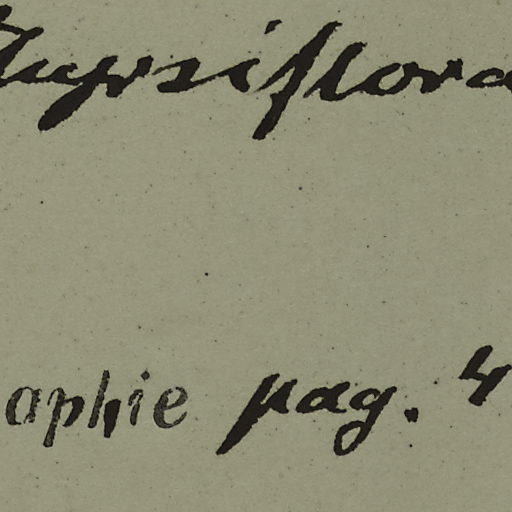 thyrsiflora
aphie pag. 4